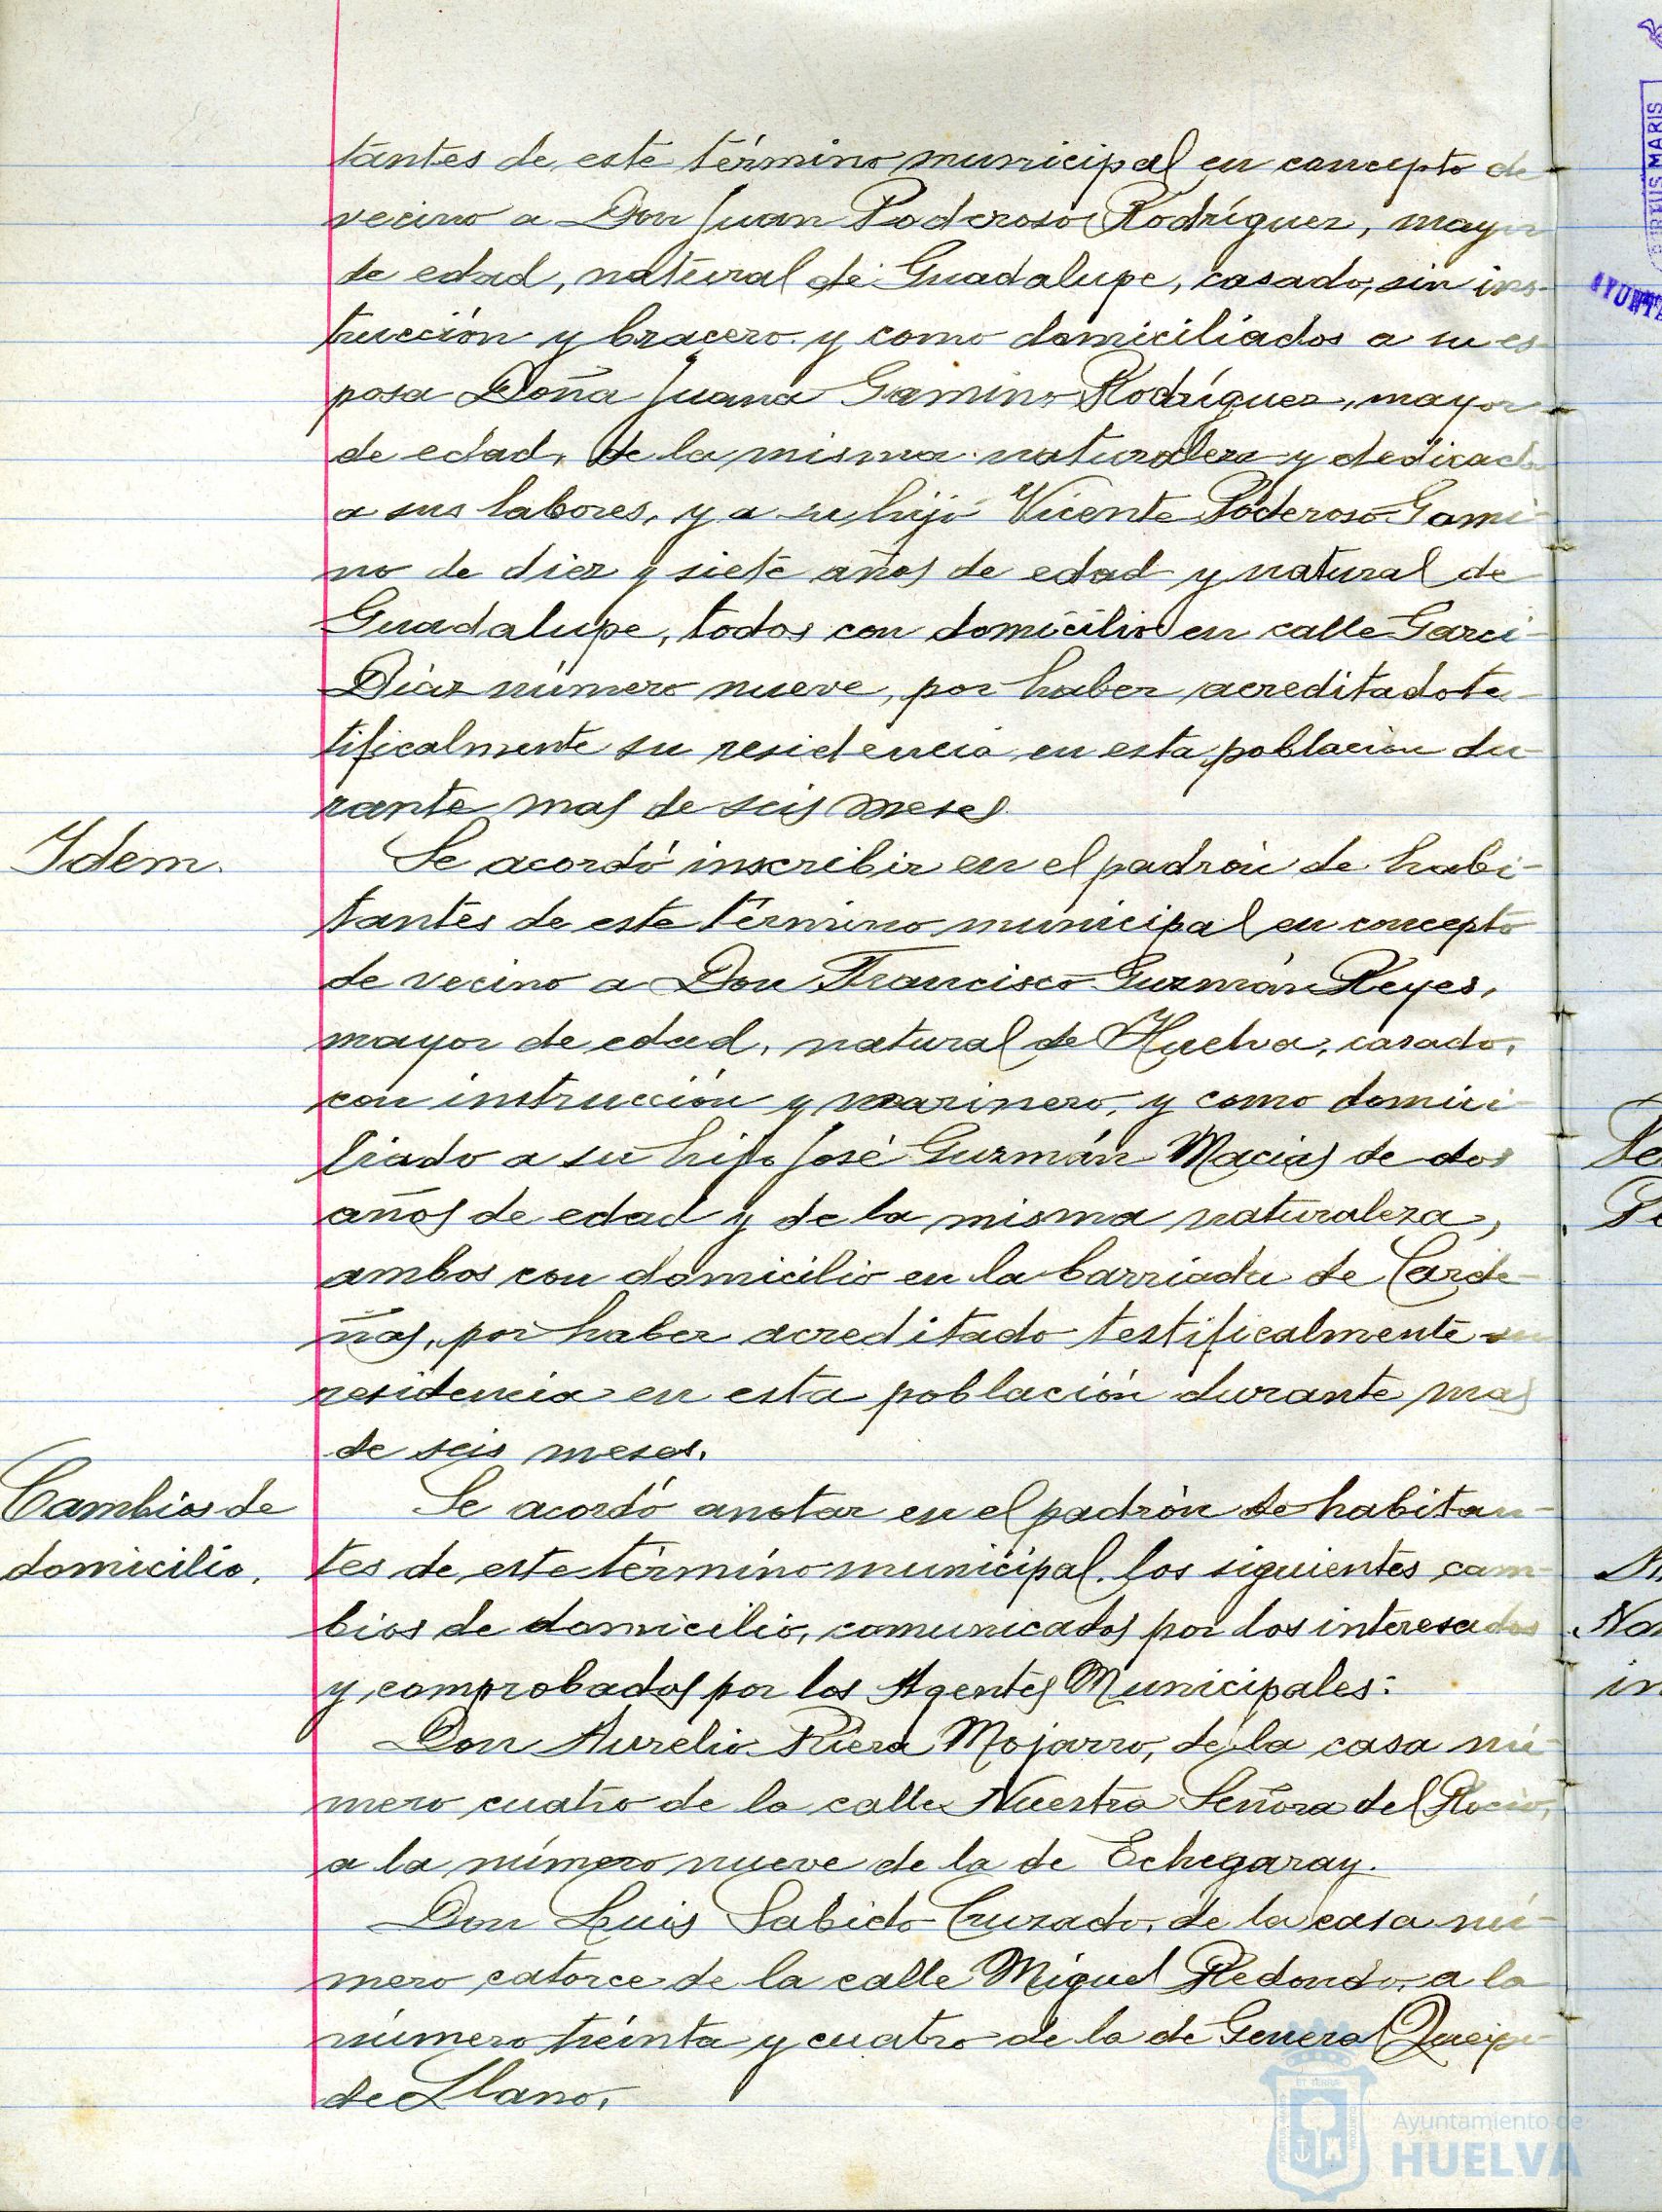 tantes de este término municipal en concepto de
vecino a Don Juan Poderoso Rodríguez, mayor
de edad, natural de Guadalupe, casado, sin ins-
trucción y bracero y como domiciliados a su es-
posa Doña Juana Gamino Rodríguez, mayor
de edad, de la misma naturaleza y dedicada
a sus labores, y a su hijo Vicente Poderoso Gami-
no de diez y siete años de edad y natural de
Guadalupe, todos con domicilio en calle Garci-
Díaz número nueve, por haber acreditado te-
tificalmente su residencia en esta población du-
rante mas de seis meses.
Idem.
Se acordó inscribir en el padrón de habi-
tantes de este término municipal en concepto
de vecino a Don Francisco Guzmán Reyes,
mayor de edad, natural de Huelva, casado,
con instrucción y marinero, y como domici-
liado a su hijo José Guzmán Macias de dos
años de edad y de la misma naturaleza,
ambos con domicilio en la barriada de Carde-
ñas, por haber acreditado testificalmente su
residencia en esta población durante mas
de seis meses.
Cambios de
domicilio.
Se acordó anotar en el padrón de habitan-
tes de este término municipal los siguientes cam-
bios de domicilio, comunicados por los interesados
y comprobados por los Agentes Municipales:
Don Aurelio Riera Mojarro, de la casa nú-
mero cuatro de la calle Nuestra Señora del Rocio,
a la número nueve de la de Echegaray.
Don Luis Sabido Cruzado, de la casa nú-
mero catorce de la calle Miguel Redondo, a la
número treinta y cuatro de la de General Queipo
de Llano.
MARIS
Ayuntamiento de
HUELVA